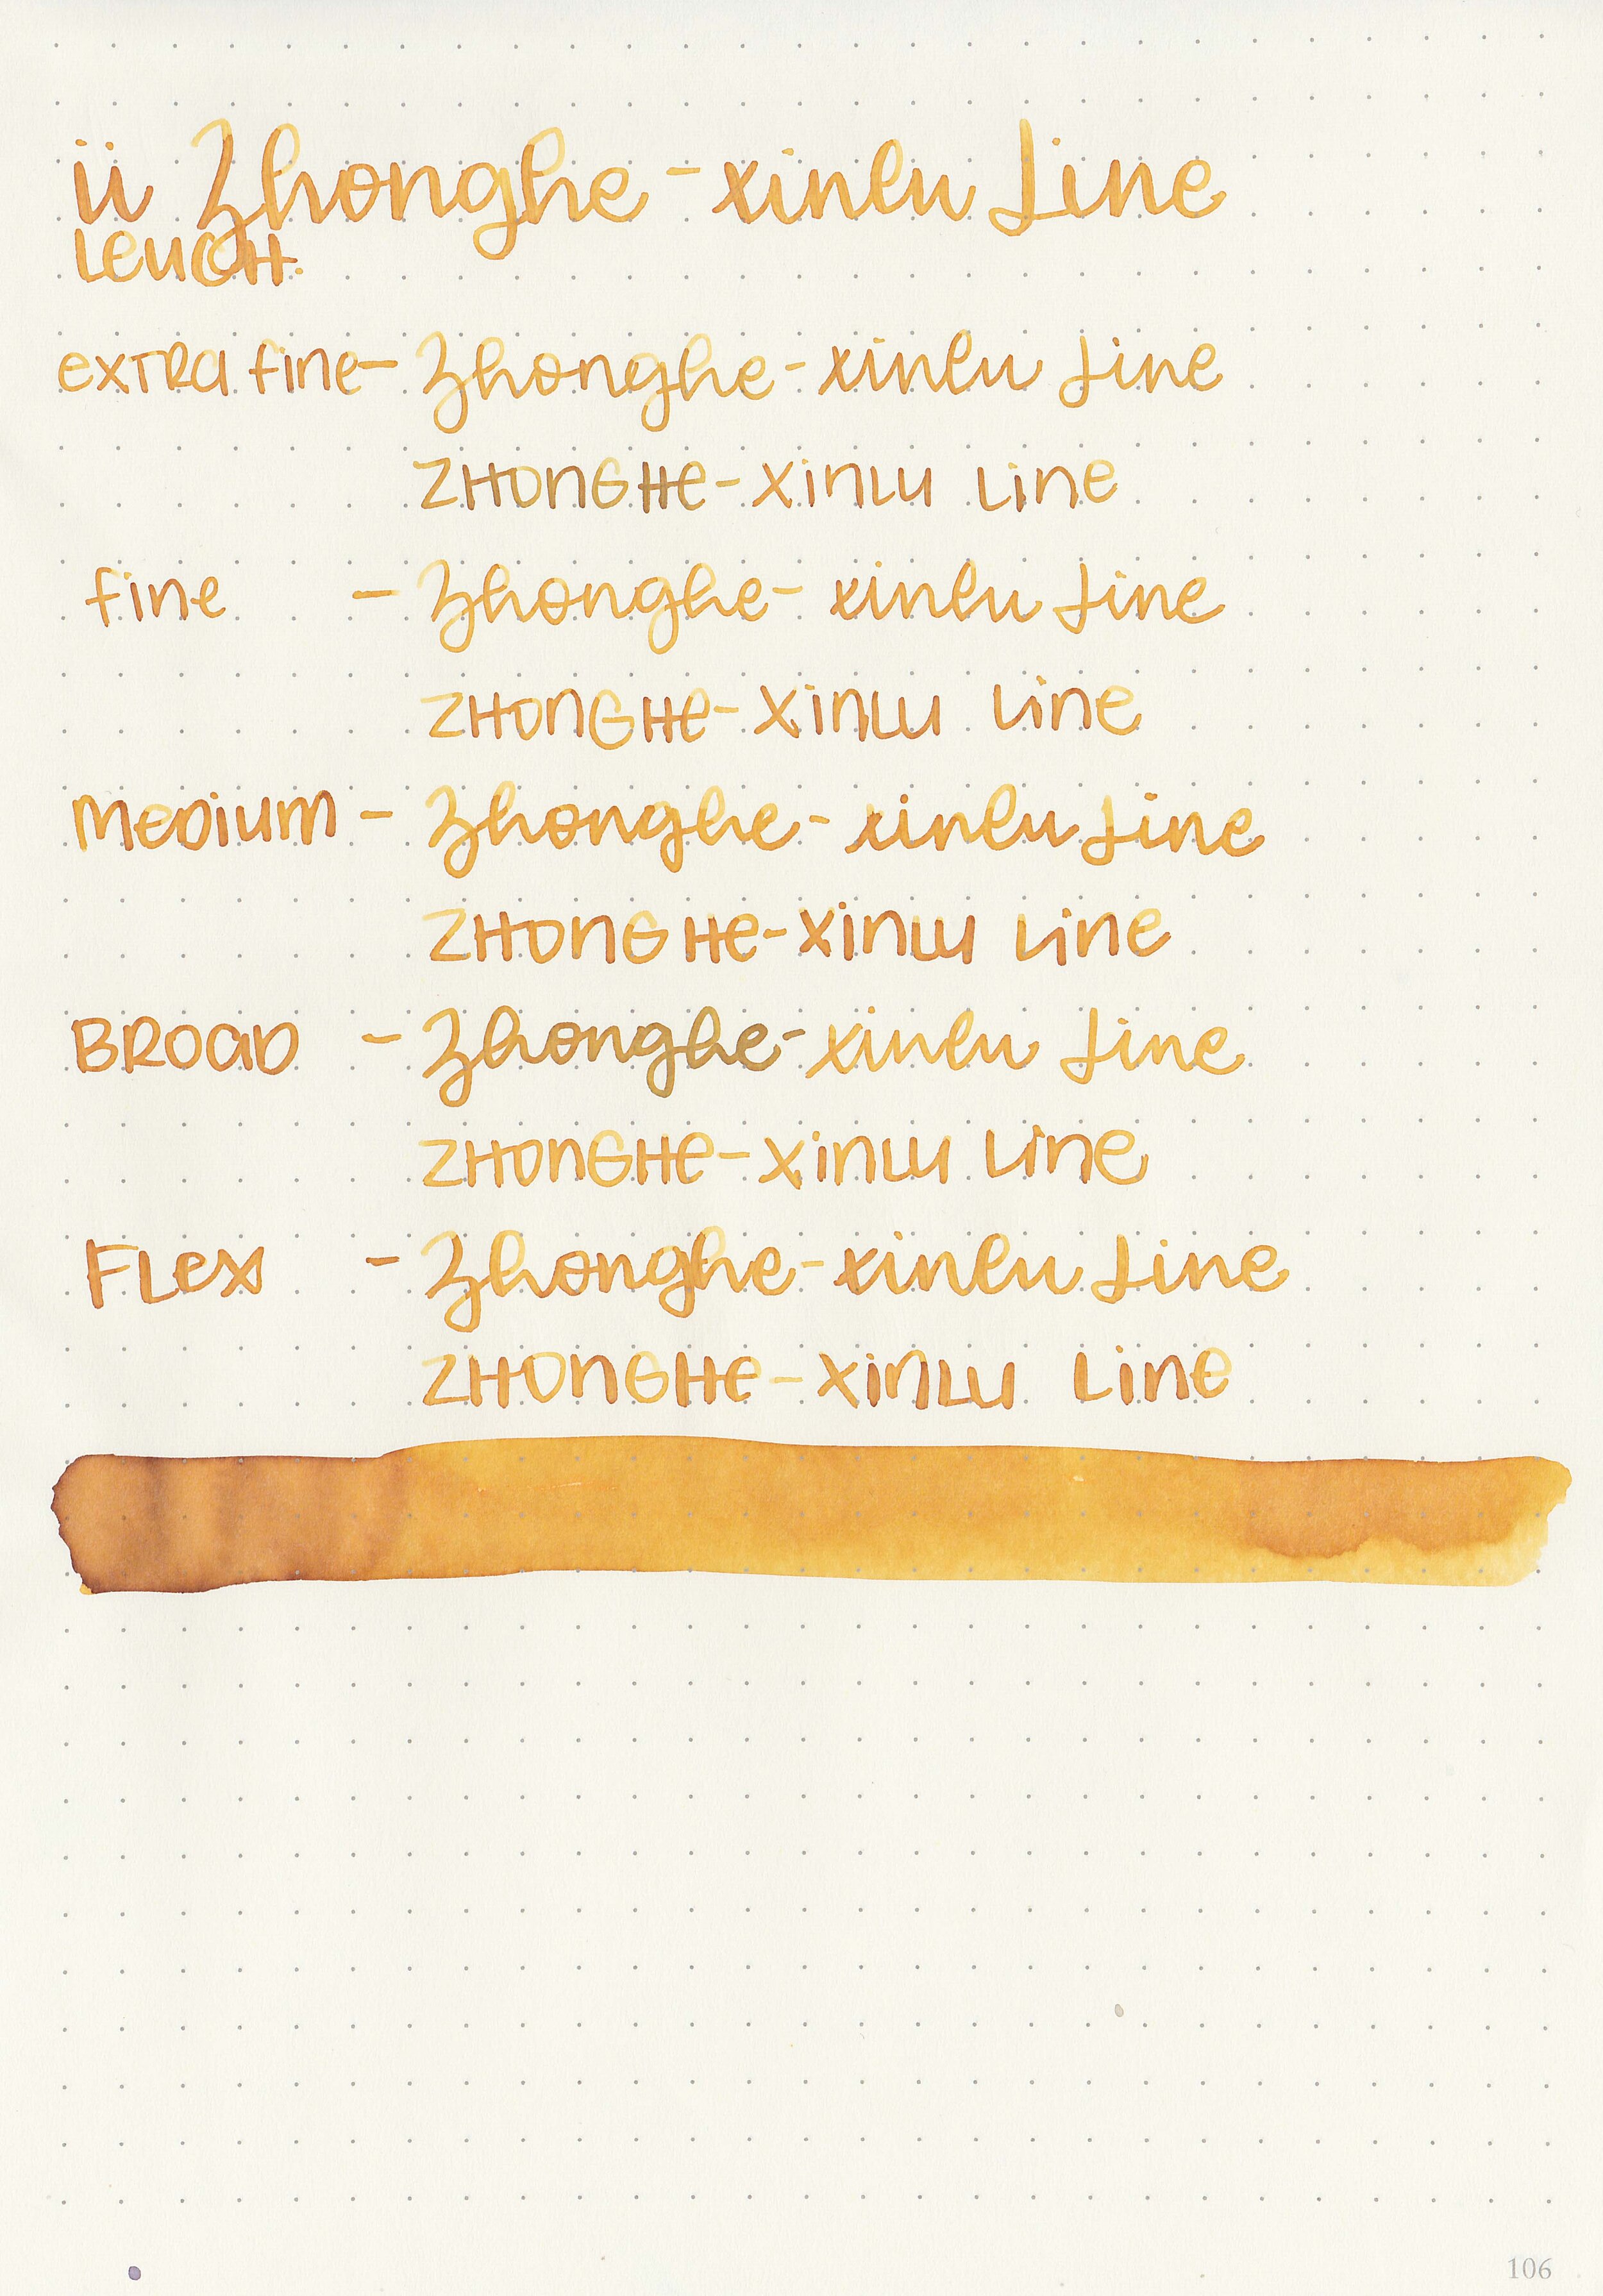 ii Zhonghe-xinlu Line
Leuch.
extra fine - Zhonghe-xinlu Line
Zhonghe-xinlu Line
fine - Zhonghe-xinlu Line
Zhonghe-xinlu Line
Medium - Zhonghe-xinlu Line
Zhonghe-xinlu Line
Broad - Zhonghe-xinlu Line
Zhonghe-xinlu Line
Flex - Zhonghe-xinlu Line
Zhonghe-xinlu Line
106